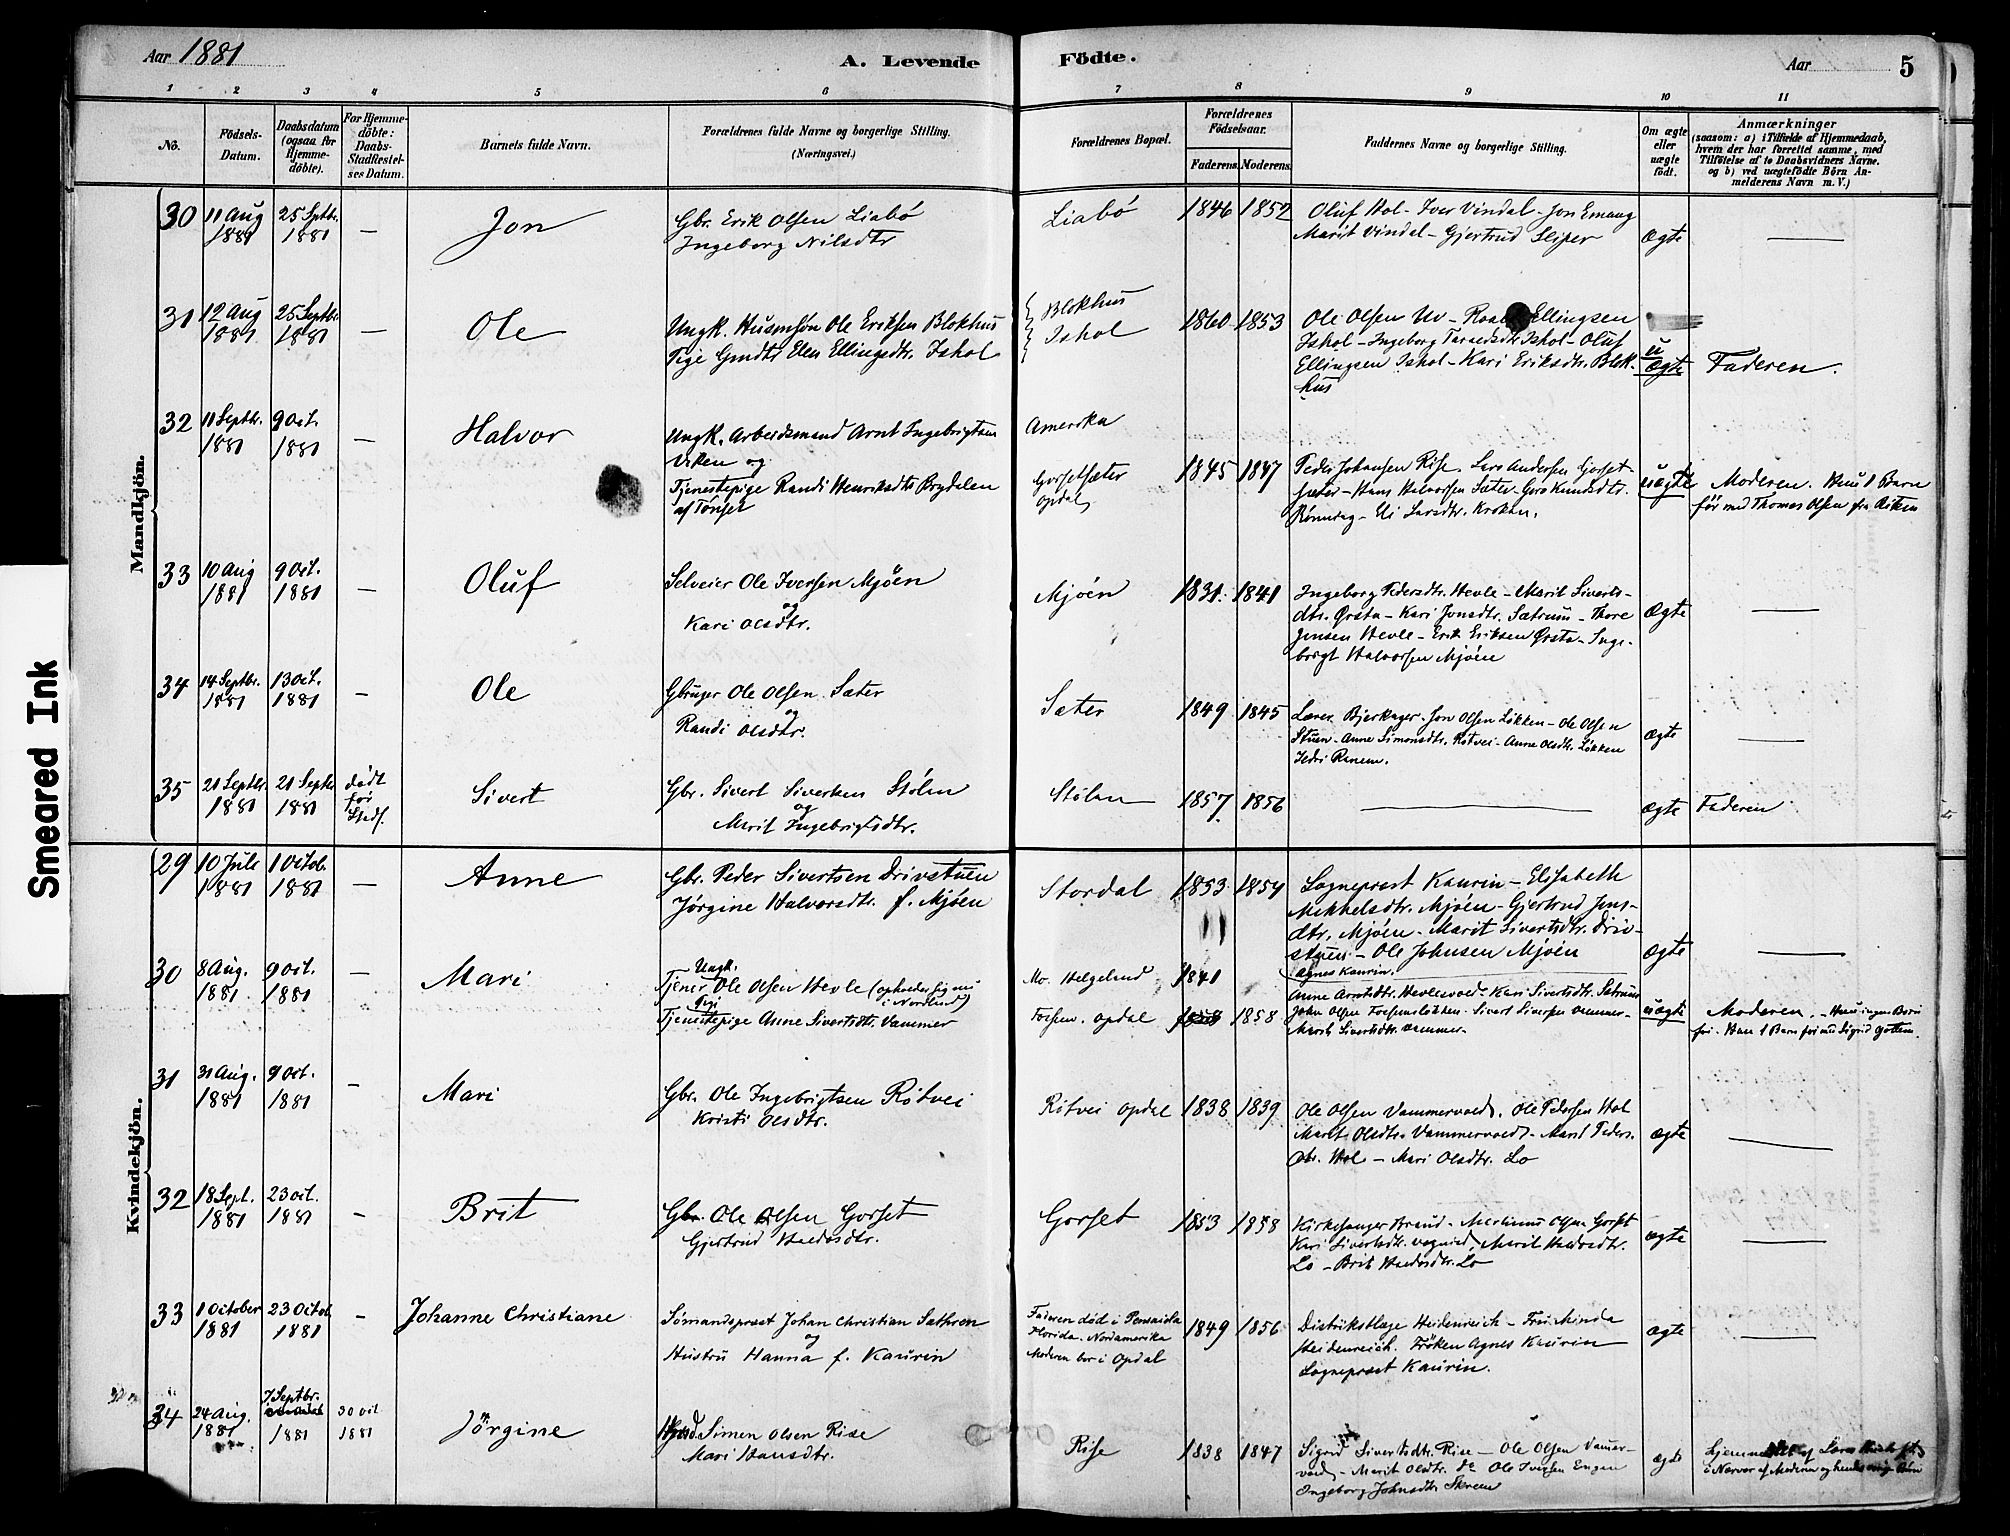 Aar 1881
A. Levende Födte.
Aar 5
1 2 3 4 5 6 7 8 9 10 11
No.
Födsels-Datum.
Daabsdatum (ogsaa for Hjemme-döbte).
For Hjemme-döbte: Daabs-Stadfæstel-ses Datum.
Barnets fulde Navn.
Forældrenes fulde Navne og borgerlige Stilling. (Næringsvei.)
Forældrenes Bopæl.
Forældrenes Födselsaar.
Faderens. Moderens.
Faddernes Navne og borgerlige Stilling.
Om ægte eller uægte födt.
Anmærkninger
(saasom: a) i Tilfælde af Hjemmedaab, hvem der har forrettet samme, med Tilföielse af to Daabsvidners Navne. og b) ved uægtefödte Börn An-melderens Navn m. V.)
Mandkjön.
30 11 Aug 1881 25 Septbr. 1881 — Jon
Gbr. Erik Olsen Liabö
Ingeborg Nilsdtr
Liabö 1846 1852
Oluf Hol - Iver Vindal - Jon Emaug
Marit Vindal - Gjertrud Sliper
Ægte —
31 12 Aug 1881 25 Septbr. 1881 — Ole
Ungk. Husmsøn Ole Eriksen Blokhus
Pige Gmdtr Elen Ellingsdtr. Ishol
Blokhus
Ishol
1860 1853
Ole Olsen Uv - Ellingsen
Ishol - Ingeborg Ishol - Oluf
Ellingsen Ishol - Kari Eriksdtr. Blok-
hus
u ægte Faderen.
32 11 Septbr. 1881 9 Oct. 1881 — Halvor
Ungk. Arbeidsmand Arnt Ingebrigtsen
Viken og
Tjenestepige Randi Henriksdtr Brydalen
af Tønset
Amerika
Gorsetsæter
Opdal
1845 1847
Peder Johansen Rise. Lars Andersen Gorset-
sæter - Hans Halvorsen Sæter - Goro Knudsdtr.
Rønning - Eli Larsdtr. Krokan.
uægte Moderen. Hun 1 Barn
før med Thomas Olsen fra
33 10 Aug 1881 9 Oct. 1881 — Oluf
Selveier Ole Iversen Mjöen
og
Kari Olsdtr.
Mjöen 1831. 1841
Ingeborg Pedersdtr. Hevle - Marit Siverts-
dtr. Ørsta - Kari Jonsdtr. Sætrum - Thore
Jensen Hevle - Erik Eriksen Ørsta - Inge-
brigt Halvorsen Mjöen
Ægte —
34 14 Septbr. 1881 13 Oct. 1881 — Ole
Gbruger Ole Olsen Sæter
og
Randi Olsdtr.
Sæter 1849 1845
Lærer Bjerkager. Jon Olsen Løkken - Ole Olsen
Stuen - Anne Simonsdtr. Røtvei - Anne Olsdtr. Løkken
ægte —
35 21 Septbr. 1881 21 Septbr 1881 dødt før Stadf. Sivert
Gbr. Sivert Sivertsen Stølen
og
Marit Ingebrigtsdtr.
Stølen 1857 1856 — ægte Faderen
Kvindekjön.
29 10 Juli 1881 1 Octob. 1881 — Anne
Gbr. Peder Sivertsen Drivstuen
Jørgine Halvorsdtr. f. Mjöen
Stordal 1853 1854
Sogneprest Kaurin - Elisabeth
Mikkelsdtr. Mjöen - Gjertrud Jens-
dtr. Mjöen - Marit Sivertsdtr. Driv-
stuen - Ole Johnsen Mjöen
Agnes Kaurin.
Ægte —
30 8 Aug. 1881 9 Oct. 1881 — Mari
Ungk.
Tjener Ole Olsen Hevle (opholder sig nu i Nordland)
Pige
Tjenestepige Anne Sivertsdtr. Vammer
Mo. Helgeland 1841
Opdal 1858
Anne Arntsdtr. Hevlesvold - Kari Sivertsdtr. Sætrum
John Olsen - Sivert Sivertsen Vammer -
Marit Sivertsdtr. Vammer.
uægte Moderen. - Hun ingen Børn
før. Han 1 Barn før med Sigrid
31 31 Aug. 1881 9 Oct. 1881 — Mari
Gbr. Ole Ingebrigtsen Røtvei
Kristi Olsdtr.
Røtvei Opdal 1838 1839
Ole Olsen Vammervold. Ole Pedersen Hol
Marit Olsdtr. Vammervold - Marit Peders-
dtr. Hol - Mari Olsdtr. Lo
ægte —
32 18 Sept. 1881 23 Oct. 1881 — Brit
Gbr Ole Olsen Gorset
Gjertrud Haldosdtr.
Gorset 1853 1858
Kirkesanger Brand - Olsen Gorset
Kari Sivertsdtr. - Marit Haldosdtr.
Lo - Brit Haldosdtr. Lo
ægte —
33 1 October 1881 23 Octob. 1881 — Johanne Christiane
Sømandsprest Johan Christian Sathren
og
Hustru Hanna f. Kaurin
Faderen død i Pensacola
Florida. Nordamerika
Moderen bor i Opdal
1849 1856
Distriktslæge Heidenreich - Fru Minda
Heidenreich. Frøken Agnes Kaurin
Sogneprest Kaurin.
ægte —
34 24 Aug. 1881 7 Septbr. 1881 30 Oct 1881 Jörgine
Simen Olsen Rise
Mari Hansdtr.
Rise 1838 1847
Sigrid Sivertsdtr. Rise - Ole Olsen Vamer-
vold - Marit Olsdtr. do Ole Iversen Engan
Ingeborg Johnsdtr Skrem
ægte
Smeared Ink